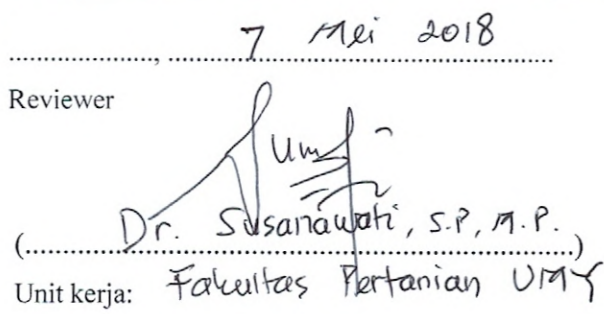 ...................., 7 Mei 2018
Reviewer
(Dr. Susanawati, S.P, M.P.)
Unit kerja: Fakultas Pertanian UMY